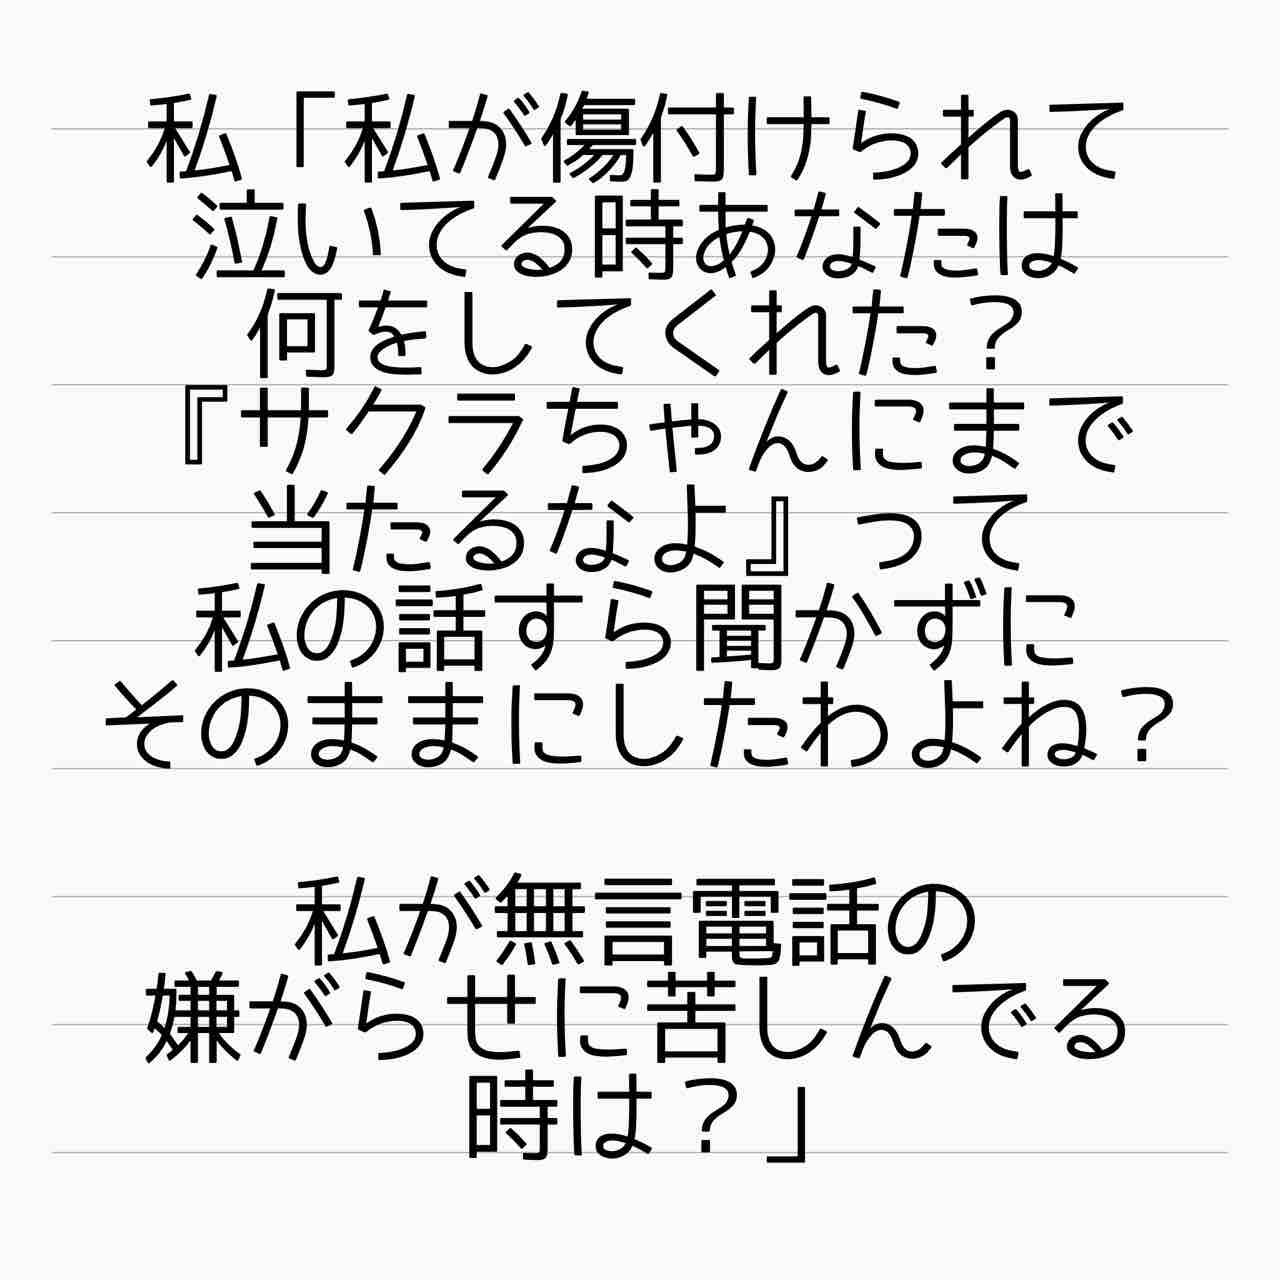 私「私が傷付けられて
泣いてる時あなたは
何をしてくれた？
『サクラちゃんにまで
当たるなよ』って
私の話すら聞かずに
そのままにしたわよね？
私が無言電話の
嫌がらせに苦しんでる
時は？」